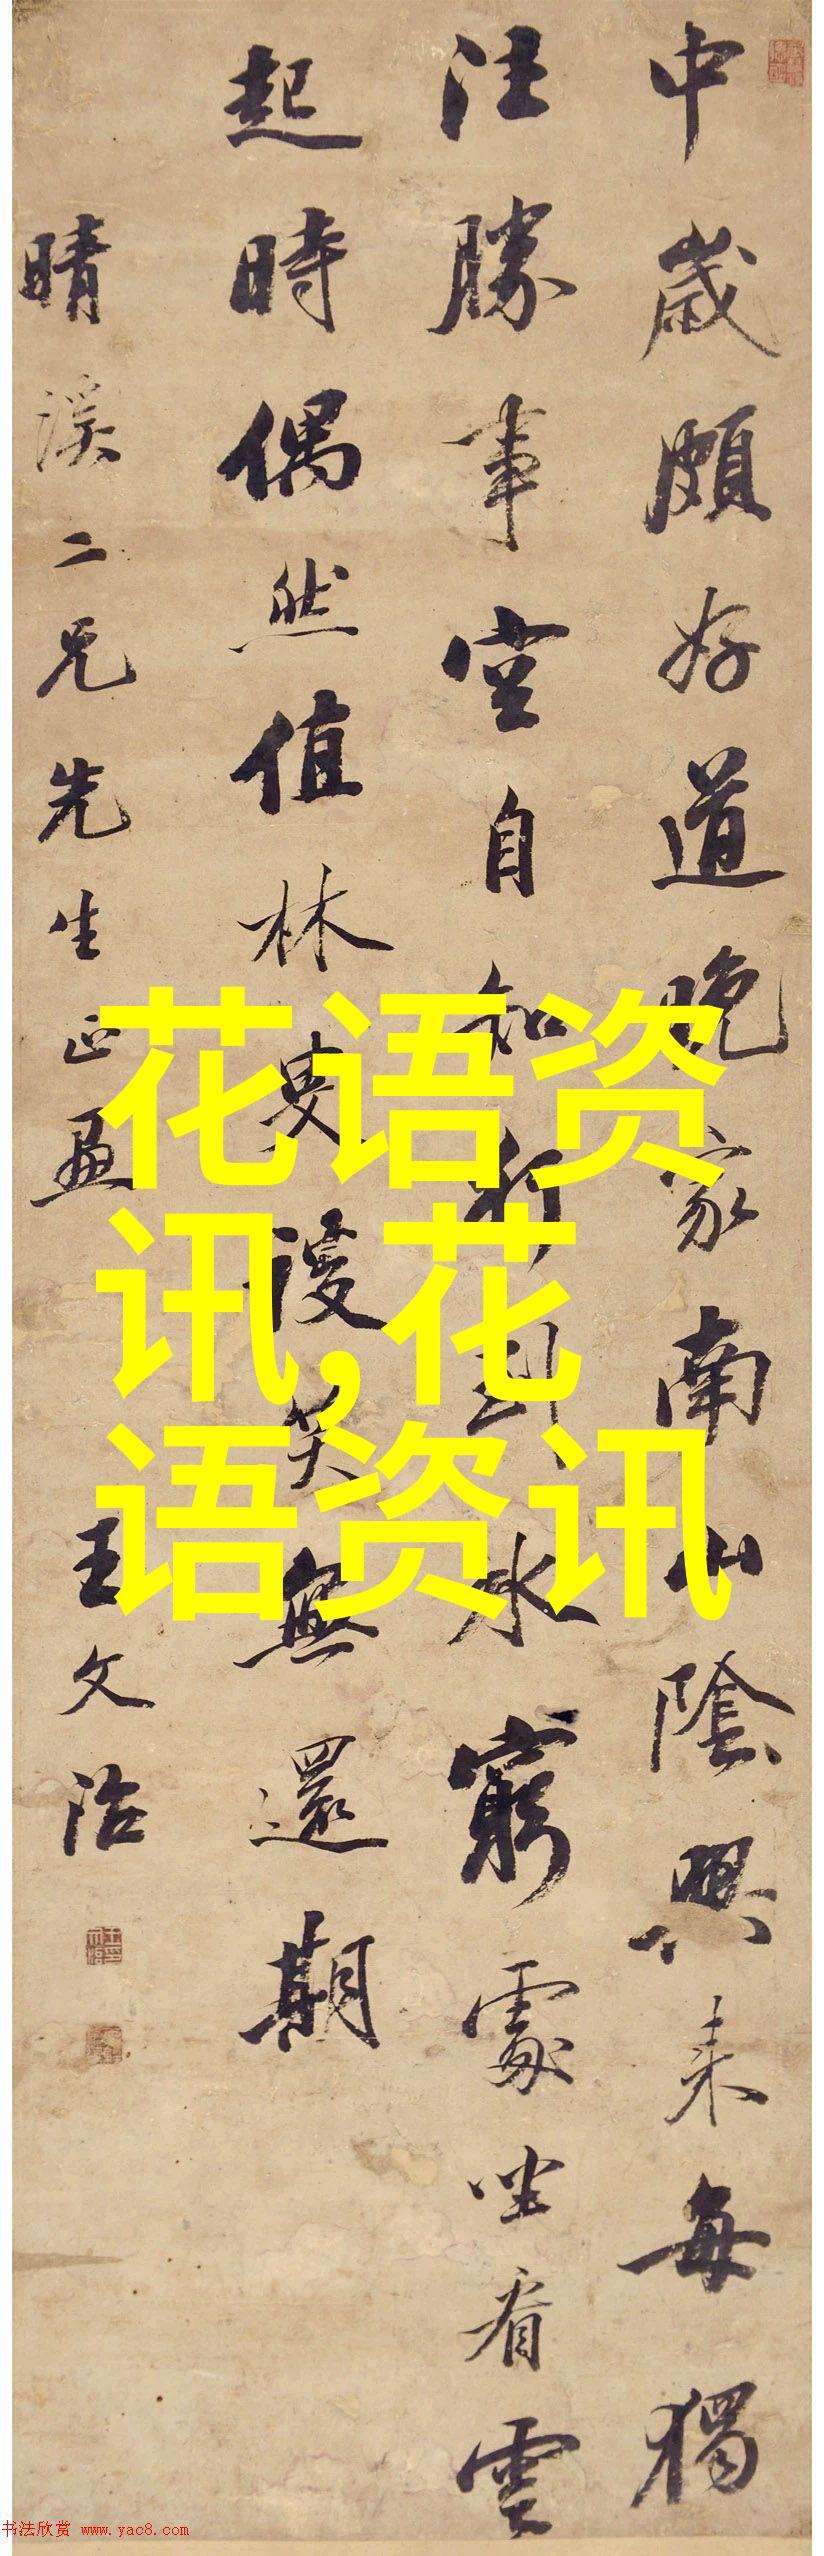 中歲頗好道晚家南山陰興來每獨
往勝事空自知行到水窮處坐看雲
起時偶然值林叟談笑無還期
晴溪二兄先生正
王文治
花语资
讯,花
语资讯
书法欣赏 www.yac8.com